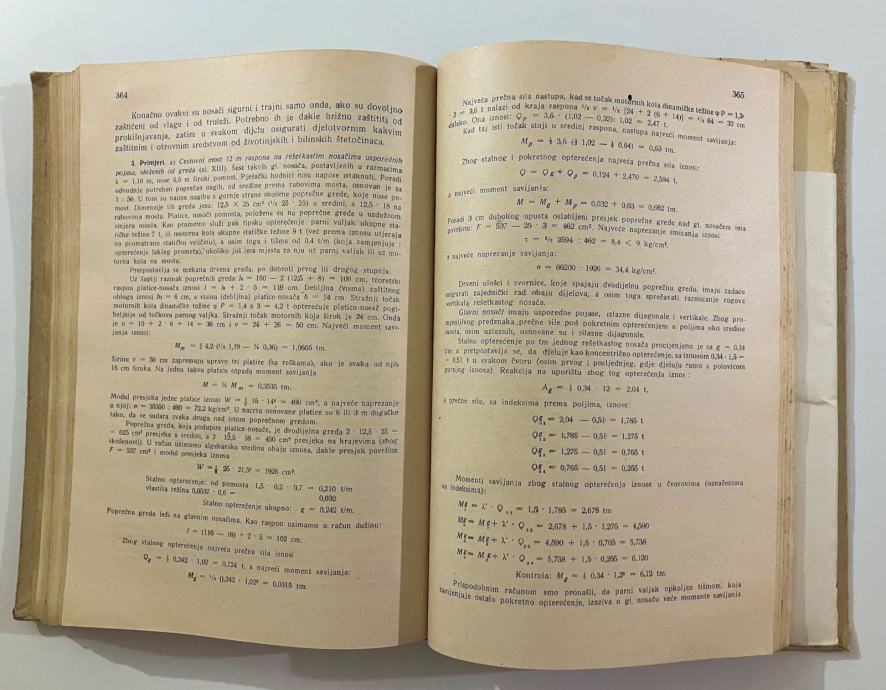 364
Konačno ovakvi su nosači sigurni i trajni samo onda, ako su dovoljno
zaštićeni od vlage i od truleži. Potrebno ih je dakle brižno zaštititi od
prokišnjavanja, zatim u svakom dijelu osigurati djelotvornim kakvim
zaštitnim i otrovnim sredstvom od životinjskih i bilinskih štetočinaca.
5. Primjeri. a) Cestovni most 12 m raspona na rešetkastim nosačima usporednih
pojasa, složenih od greda (sl. XIII). Šest takvih gl. nosača, postavljenih u razmacima
λ = 1,10 m, nose 6,5 m široki pomost. Pješački hodnici nisu napose istaknuti. Poradi
odvodnje potreban poprečan nagib, od sredine prema rubovima mosta, osnovan je sa
1 : 50. U tom su naime nagibu s gornje strane skošene poprečne grede, koje nose po-
most. Dimenzije tih greda jesu: 12,5 × 25 cm² (½ 25 · 25) u sredini, a 12,5 · 18 na
rubovima mosta. Platice, nosači pomosta, položene su na poprečne grede u uzdužnom
smjeru mosta. Kao prometno služi pak tipsko opterećenje: parni valjak ukupne sta-
tičke težine 7 t, ili motorna kola ukupne statičke težine 9 t (već prema iznosu utjecaja
na promatranu statičku veličinu), a osim toga i tišma od 0,4 t/m (koja zamjenjuje i
opterećenje lakšeg prometa), ukoliko još ima mjesta za nju uz parni valjak ili uz mo-
torna kola na mostu.
Pretpostavlja se mekana drvena građa, po dobroti prvog ili drugog stupnja.
Uz šuplji razmak poprečnih greda h = 150 — 2 (12,5 + 8) = 109 cm, teoretski
raspon platice-nosača iznosi l = h + 2 · 5 = 119 cm. Debljina (visina) zaštitnog
obloga iznosi h₁ = 6 cm, a visina (debljina) platice-nosača h = 14 cm. Stražnji točak
motornih kola dinamičke težine φ P = 1,4 × 3 = 4,2 t opterećuje platicu-nosač pogi-
beljnije od točkova parnog valjka. Stražnji točak motornih kola širok je 24 cm. Onda
je u = 10 + 2 · 6 + 14 = 36 cm i v = 24 + 26 = 50 cm. Najveći moment savi-
janja iznosi:
Mₘ = ¼ 4,2 (½ 1,19 — ¼ 0,36) = 1,0605 tm.
Širinu v = 50 cm zapremaju upravo tri platice (sa reškama), ako je svaka od njih
15 cm široka. Na jednu takvu platicu otpada moment savijanja
M = ⅓ Mₘ = 0,3535 tm.
Modul presjeka jedne platice iznosi W = ⅙ 15 · 14² = 490 cm³, a najveće naprezanje
u njoj: σ = 35350 : 490 = 72,2 kg/cm². U nacrtu osnovane platice su 6 ili 3 m dugačke
tako, da se sudara svaka druga nad istom poprečnom gredom.
Poprečna greda, koja podupire platice-nosače, je dvodijelna greda 2 · 12,5 · 25 =
= 625 cm² presjeka u sredini, a 2 · 12,5 · 18 = 450 cm² presjeka na krajevima (zbog
skošenosti). U račun uzimamo algebarsku sredinu obaju iznosa, dakle presjek površine
F = 537 cm² i modul presjeka iznosa
W = ⅙ 25 · 21,5² = 1926 cm³.
Stalno opterećenje: od pomosta 1,5 · 0,2 · 0,7 = 0,210 t/m
vlastita težina 0,0537 · 0,6 = 0,032
Stalno opterećenje ukupno: g = 0,242 t/m.
Poprečna greda leži na glavnim nosačima. Kao raspon uzimamo u račun dužinu:
l = (110 — 18) + 2 · 5 = 102 cm.
Zbog stalnog opterećenja najveća prečna sila iznosi
Q_g = ½ 0,242 · 1,02 = 0,124 t, a najveći moment savijanja:
M_g = ⅛ 0,242 · 1,02² = 0,0315 tm
365
Najveća prečna sila nastupa, kad se točak motornih kola dinamičke težine φ P = 1,2 ·
· 3 = 3,6 t nalazi od kraja raspona ½ v = ½ [24 + 2 (6 + 14)] = ½ 64 = 32 cm
daleko. Ona iznosi: Qₚ = 3,6 · (1,02 — 0,32): 1,02 = 2,47 t.
Kad taj isti točak stoji u sredini raspona, nastupa najveći moment savijanja:
Mₚ = ½ 3,6 (½ 1,02 — ¼ 0,64) = 0,63 tm.
Zbog stalnog i pokretnog opterećenja najveća prečna sila iznosi:
Q = Q_g + Qₚ = 0,124 + 2,470 = 2,594 t,
a najveći moment savijanja:
M = M_g + Mₚ = 0,032 + 0,63 = 0,662 tm.
Poradi 3 cm dubokog upusta oslabljeni presjek poprečne grede nad gl. nosačem ima
površinu: F = 537 — 25 · 3 = 462 cm². Najveće naprezanje smicanja iznosi
τ = ³/₂ 2594 : 462 = 8,4 < 9 kg/cm².
a najveće naprezanje savijanja:
σ = 66200 : 1926 = 34,4 kg/cm².
Drveni ulošci i svornice, koje spajaju dvodijelnu poprečnu gredu, imaju zadaću
osigurati zajednički rad obaju dijelova, a osim toga sprečavati razmicanje rogova
vertikalā rešetkastog nosača.
Glavni nosači imaju usporedne pojase, izlazne dijagonale i vertikale. Zbog pro-
mjenljivog predznaka prečne sile pod pokretnim opterećenjem u poljima oko sredine
mosta, osim uzlaznih, osnovane su i silazne dijagonale.
Stalno opterećenje po tm jednog rešetkastog nosača procijenjeno je sa g = 0,34
t/m a pretpostavlja se, da djeluje kao koncentrično opterećenje, sa iznosom 0,34 · 1,5 =
= 0,51 t u svakom čvoru (osim prvog i posljednjeg, gdje djeluju ramo s polovicom
gornjeg iznosa). Reakcija na uporištu zbog tog opterećenja iznosi:
A_g = ½ 0,34 · 12 = 2,04 t,
a prečne sile, sa indeksima prema poljima, iznose:
Qg₁ = 2,04 — 0,51 = 1,785 t
Qg₂ = 1,785 — 0,51 = 1,275 t
Qg₃ = 1,275 — 0,51 = 0,765 t
Qg₄ = 0,765 — 0,51 = 0,255 t
Momenti savijanja zbog stalnog opterećenja iznose u čvorovima (označenima
sa indeksima):
= 1,5 · 1,785 = 2,678 tm
= 2,678 + 1,5 · 1,275 = 4,590
= 4,590 + 1,5 · 0,765 = 5,738
= 5,738 + 1,5 · 0,255 = 6,120
Kontrola: M_g = ⅛ 0,34 · 12² = 6,12 tm.
Prispodobnim računom smo pronašli, da parni valjak opkoljen tišmom, koja
zamjenjuje ostalo pokretno opterećenje, izaziva u gl. nosaču veće momente savijanja